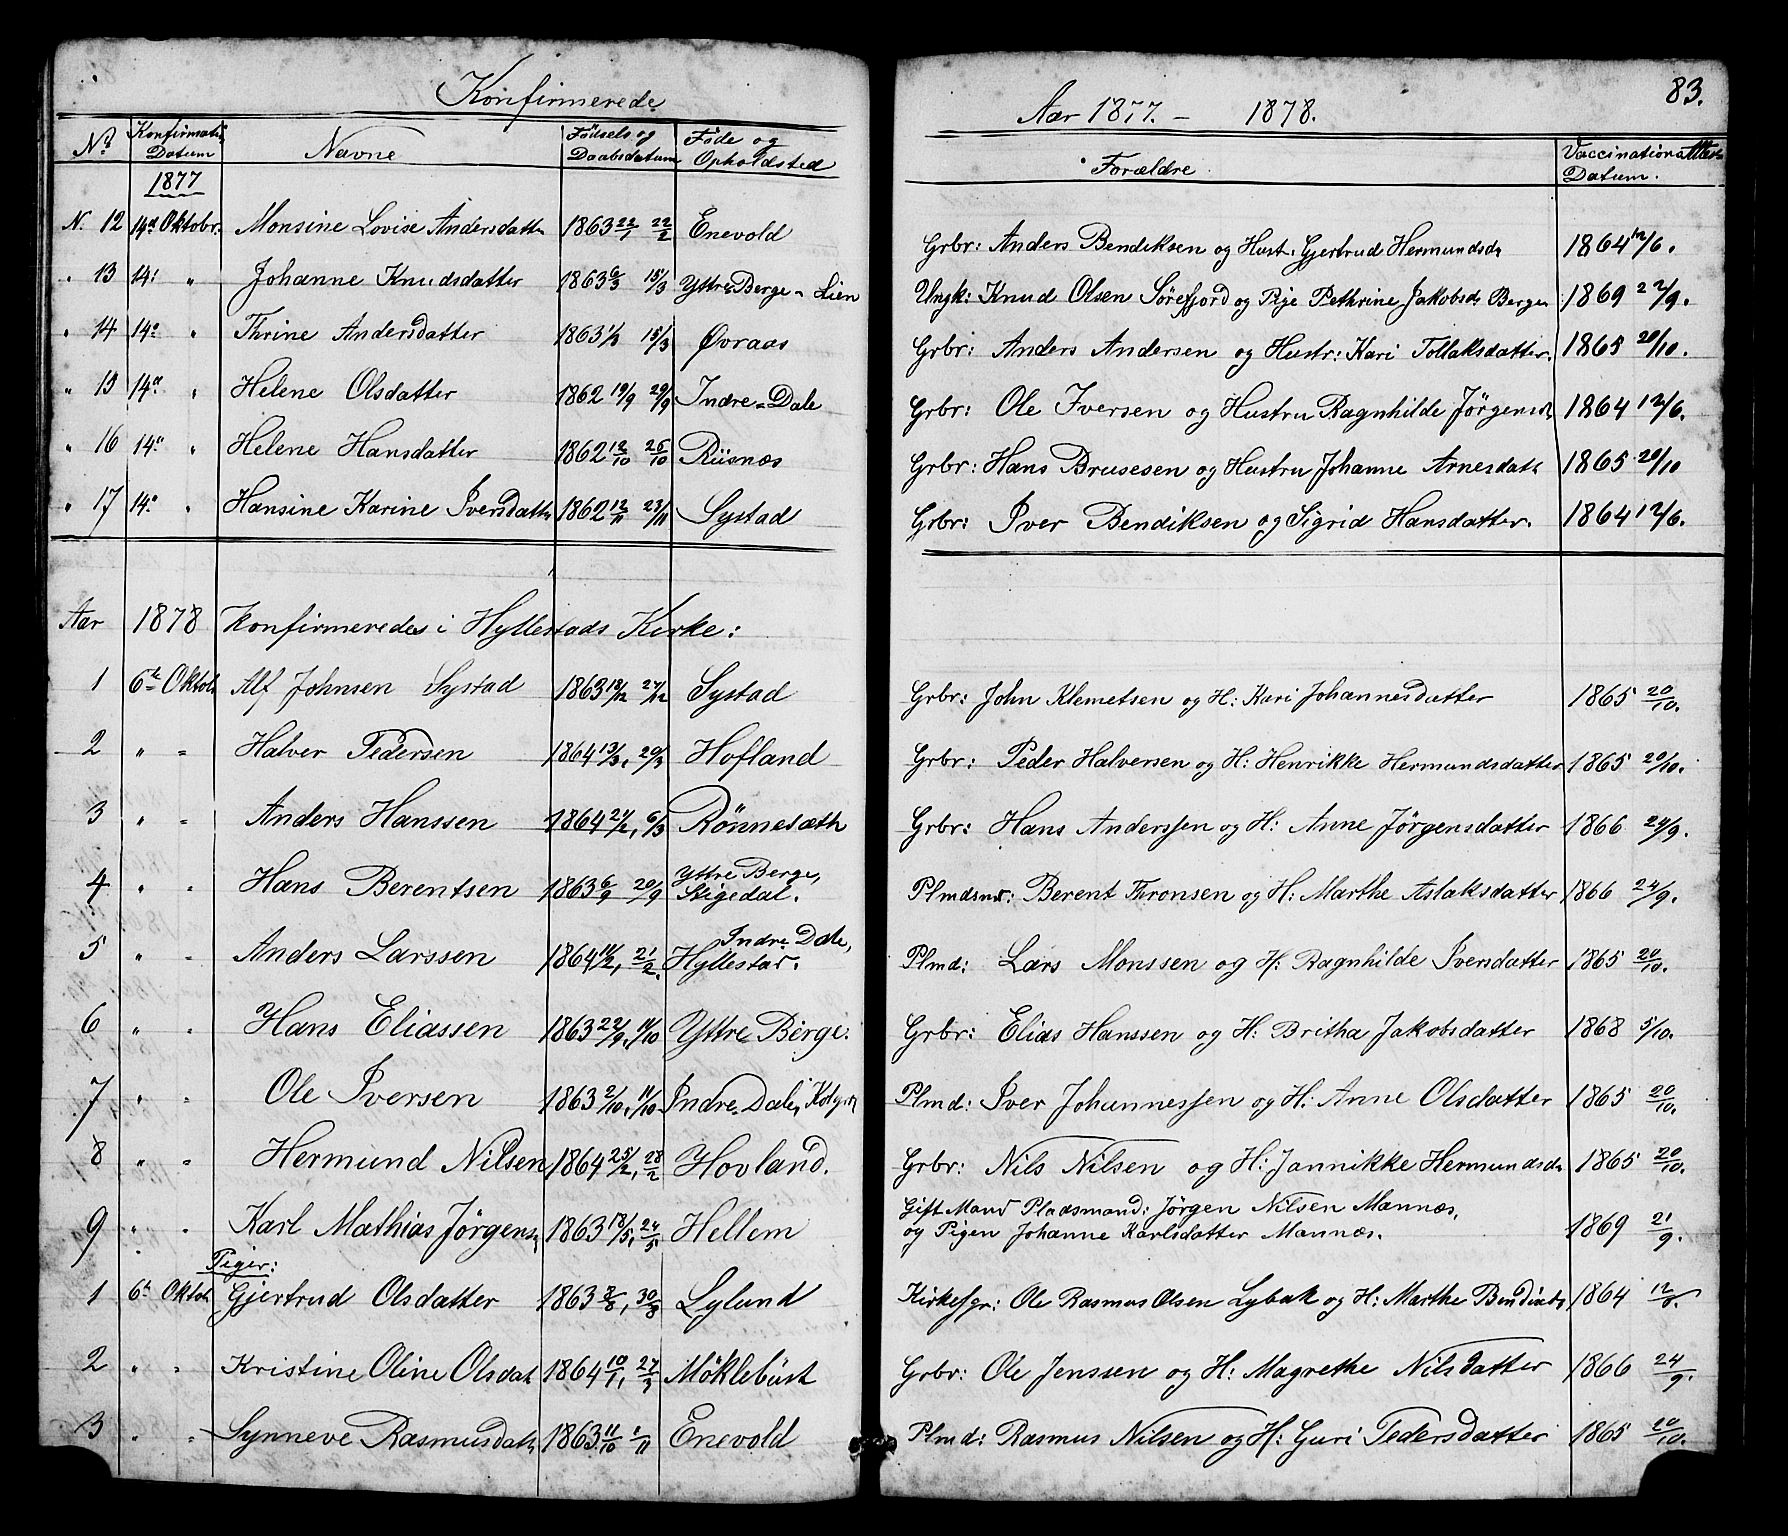 Konfirmerede
Aar 1877. – 1878.
83.
No. Konfirmati. Datum Navne Fødsels og Daabsdatum Føde og Opholdsted Forældre Vaccinationsattest Datum.
1877
N. 12 14de Oktobr. Monsine Lovise Andersdattr 1863 22/1 22/2 Enevold Grbr: Anders Bendiksen og Hust. Gjertrud Hermundsd. 1864 12/6.
" 13 14. " Johanne Knudsdatter 1863 6/3 15/3 Yttre Berge - Lien Ungk: Knud Olsen Sørefjord og Pige Pethrine Jakobsd. Bergen 1869 22/9.
" 14 14. " Thrine Andersdatter 1863 1/3 15/3 Øvraas Grbr: Anders Andersen og Hustr: Kari Tollaksdatter. 1865 20/10.
" 15 14. " Helene Olsdatter 1862 19/9 29/9 Indre-Dale Grbr: Ole Iversen og Hustru Ragnhilde Jörgensd. 1864 12/6.
" 16 14. " Helene Hansdatter 1862 12/10 26/10 Riisnæs Grbr: Hans Brusesen og Hustru Johanne Arnesdatt. 1865 20/10
" 17 14. " Hansine Karine Iversdatt. 1862 12/11 23/11 Systad Grbr: Iver Bendiksen og Sigrid Hansdatter. 1864 12/6.
Aar 1878 Konfirmeredes i Hyllestads Kirke:
1 6te Oktob. Alf Johnsen Systad 1863 18/12 27/12 Systad Grbr: John Klemetsen og H: Kari Johannesdatter 1865 20/10.
2 " " Halver Pedersen 1864 13/3, 20/3 Hofland Grbr: Peder Halversen og H: Henrikke Hermundsdatter 1865 20/10.
3 " " Anders Hanssen 1864 24/2, 6/3 Rönnesæth Grbr: Hans Anderssen og H: Anne Jörgensdatter 1866 24/9.
4 " " Hans Berentsen 1863 6/9 20/9 Yttre Berge, Stigedal. Plmdsmd: Berent Thronsen og H: Marthe Aslaksdatter 1866 24/9.
5 " " Anders Larssen 1864 11/2, 21/2 Indre Dale, Hyllestad. Plmd: Lars Monssen og H: Ragnhilde Iversdatter 1865 20/10.
6 " " Hans Eliassen 1863 22/9, 11/10 Yttre Birge. Grbr: Elias Hanssen og H: Britha Jakobsdatter 1868 5/10.
7 " " Ole Iversen 1863 2/10, 11/10 Indre Dale, Plmd: Iver Johannessen og H: Anne Olsdatter 1865 20/10.
8 " " Hermund Nilsen 1864 25/2, 28/2 Hovland. Grbr: Nils Nilsen og H: Jannikke Hermundsd. 1865 20/10.
9 " " Karl Mathias Jörgens. 1863 18/5, 24/5 Hellem Gift Mand Pladsmand: Jørgen Nilsen Mannæs,
og Pigen Johanne Karlsdatter Mannæs. 1869 21/9.
Piger:
1 6te Oktob. Gjertrud Olsdatter 1863 8/8, 30/8 Lylund Kirkesgr: Ole Rasmus Olsen Lybak og H: Marthe 1864 12/6.
2 " " Kristine Oline Olsdat. 1864 10/1, 27/3 Möklebust Grbr: Ole Jenssen og H: Magrethe Nilsdatter 1866 24/9.
3 " " Synneve Rasmusdatt. 1863 11/10 1/11 Enevold Plmd: Rasmus Nilsen og H: Guri Pedersdatter 1865 20/10.